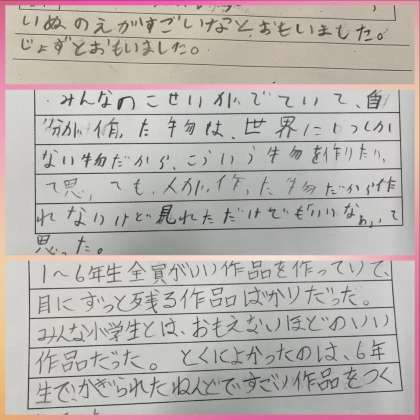 いぬのえがすごいなとおもいました。
じょずとおもいました。
みんなのこせいがでていて、自
分が作った物は、世界に1つしか
ない物だから、こういう物を作りたい
て思っても、人が作った物だから作
れないけど見れただけでもいいなぁって
思った。
1～6年生全員がいい作品を作っていて、
目にずっと残る作品ばかりだった。
みんな小学生とは、おもえないほどのいい
作品だった。とくによかったのは、6年
生で、かぎられたねんどで、すごい作品をつく